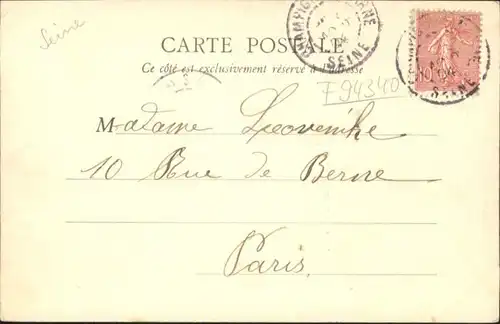 Seine
CARTE POSTALE
Ce côté est exclusivement réservé à l'adresse
F94340
SEINE
10
SEINE
Madame
10 Rue de Berne
Paris.